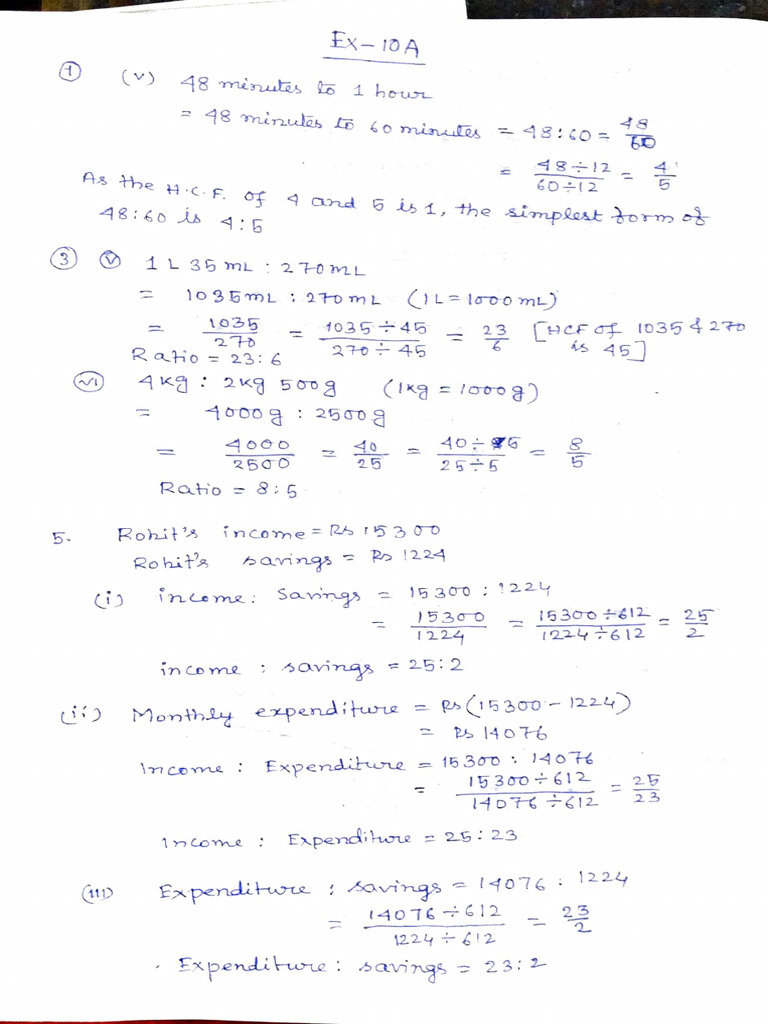 Ex-10A
① (v) 48 minutes to 1 hour
= 48 minutes to 60 minutes = 48:60 = 48/60
= 48÷12/60÷12 = 4/5
As the H.C.F. of 4 and 5 is 1, the simplest form of
48:60 is 4:5
③ ⓥ 1 L 35 mL : 270 mL
= 1035 mL : 270 mL (1L = 1000 mL)
= 1035/270 = 1035÷45/270÷45 = 23/6 [HCF of 1035 & 270
is 45]
Ratio = 23:6
(vi) 4kg : 2kg 500g (1kg = 1000g)
= 4000g : 2500g
= 4000/2500 = 40/25 = 40÷5/25÷5 = 8/5
Ratio = 8:5
5. Rohit's income = Rs 15300
Rohit's savings = Rs 1224
(i) income: Savings = 15300 : 1224
= 15300/1224 = 15300÷612/1224÷612 = 25/2
income : savings = 25:2
(ii) Monthly expenditure = Rs (15300 - 1224)
= Rs 14076
Income : Expenditure = 15300 : 14076
= 15300÷612/14076÷612 = 25/23
Income : Expenditure = 25:23
(iii) Expenditure : savings = 14076 : 1224
= 14076÷612/1224÷612 = 23/2
Expenditure : savings = 23:2